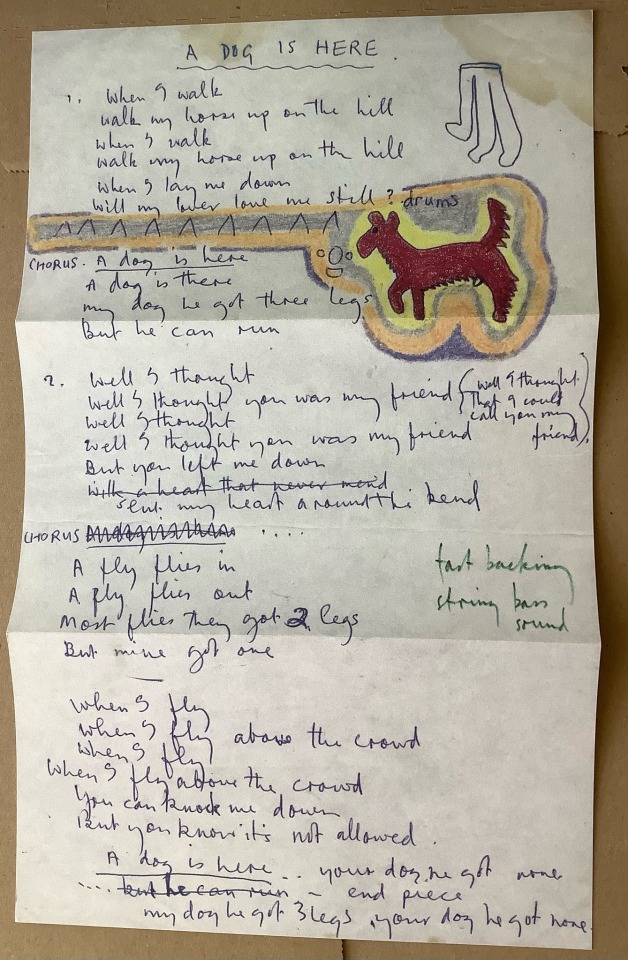 A DOG IS HERE.
1. When I walk
walk my horse up on the hill
when I walk
walk my horse up on the hill
when I lay me down
Will my lover love me still? drums
CHORUS. A dog is here
A dog is there
my dog he got three legs
But he can run
2. Well I thought
Well I thought you was my friend (well I thought
That I could
call you my
friend)
Well I thought
Well I thought you was my friend
But you left me down
with a heart that never mend
sent my heart around the bend
CHORUS ....
A fly flies in
A fly flies out
Most flies they got 2 legs
But mine got one
fast backing
string bass
sound
When I fly
When I fly above the crowd
When I fly
When I fly above the crowd
You can knock me down
But you know it's not allowed.
A dog is here .. your dog he got none
.... but he can run – end piece
my dog he got 3 legs, your dog he got none.